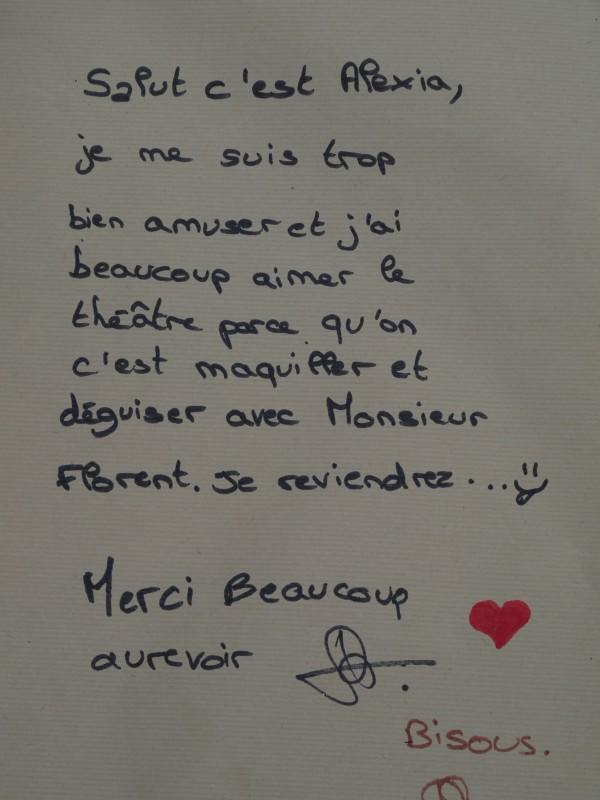 Salut c'est Alexia,
je me suis trop
bien amuser et j'ai
beaucoup aimer le
théâtre parce qu'on
c'est maquiller et
déguiser avec Monsieur
Florent. Je reviendrez...
Merci Beaucoup
aurevoir
Bisous.